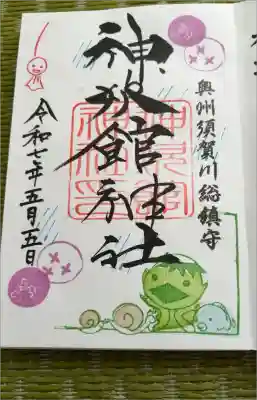 奥州須賀川総鎮守
神炊館神社
令和七年五月五日